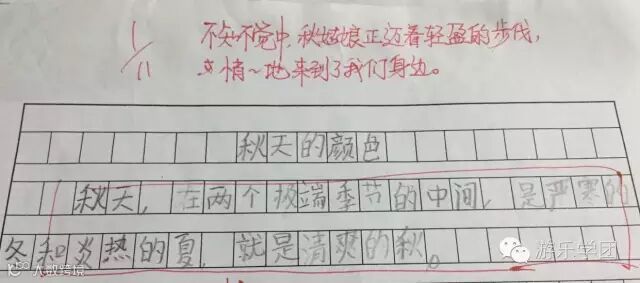 1/11
不知不觉中,秋姑娘正迈着轻盈的步伐,
悄~地来到了我们身边。
秋天的颜色
秋天,在两个极端季节的中间,是严寒的
冬和炎热的夏,就是清爽的秋。
游乐学团